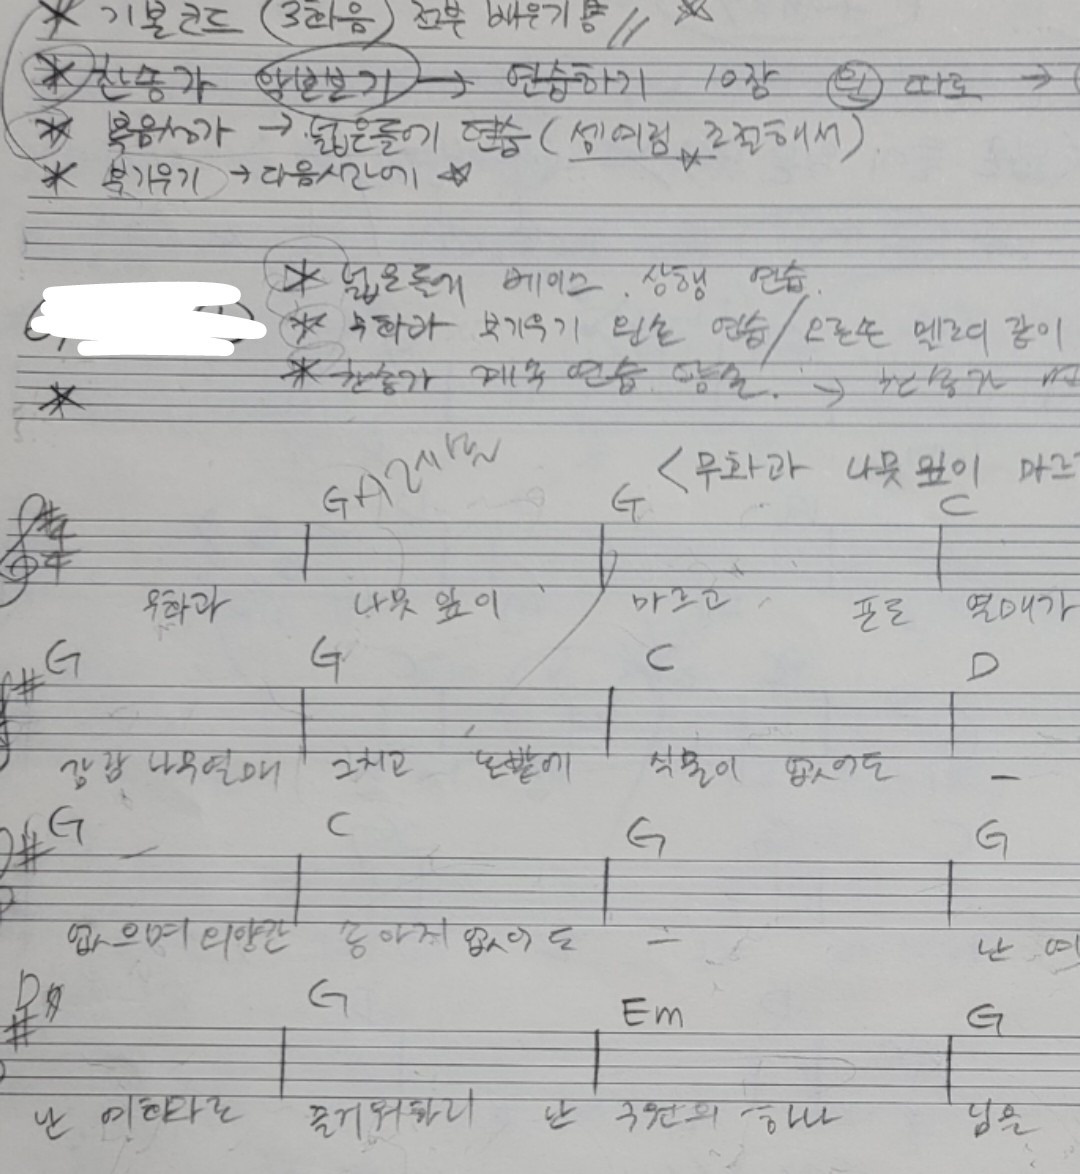 * 기본코드 (3화음) 전부 배우기 //
* 찬송가 → 연습하기 10장 따로 →
* 복음성가 → 넓은들에 연습 (셈여림 조절해서)
* 북기우기 → 다음시간에
* 넓은들에 베이스 상행 연습.
* 무화과 북기우기 왼손 연습 / 오른손 멜로디 같이
* 찬송가 계속 연습 →
*
<무화과 나뭇 잎이 마르
G G C
무화과 나뭇 잎이 마르고 포도 열매가
G G C D
감람 나무열매 그치고 논밭에 식물이 없어도 –
G C G G
없으며 외양간 송아지 없어도 – 난 여
D G Em G
난 여호와로 즐거워하리 난 구원의 하나 님을